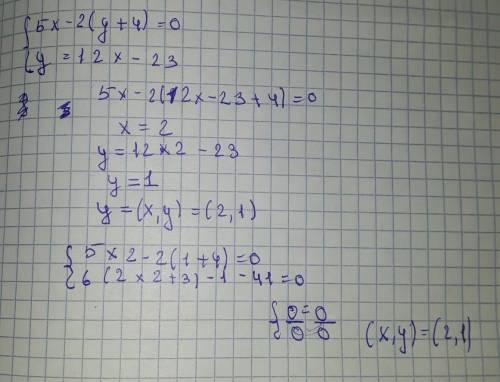 { 5x - 2(y + 4) = 0
{ y = 12x - 23
5x - 2(12x - 23 + 4) = 0
x = 2
y = 12 × 2 - 23
y = 1
y = (x, y) = (2, 1)
{ 5 × 2 - 2(1 + 4) = 0
{ 6 (2 × 2 + 3) - 1 - 41 = 0
{ 0 = 0
{ 0 = 0
(x, y) = (2, 1)